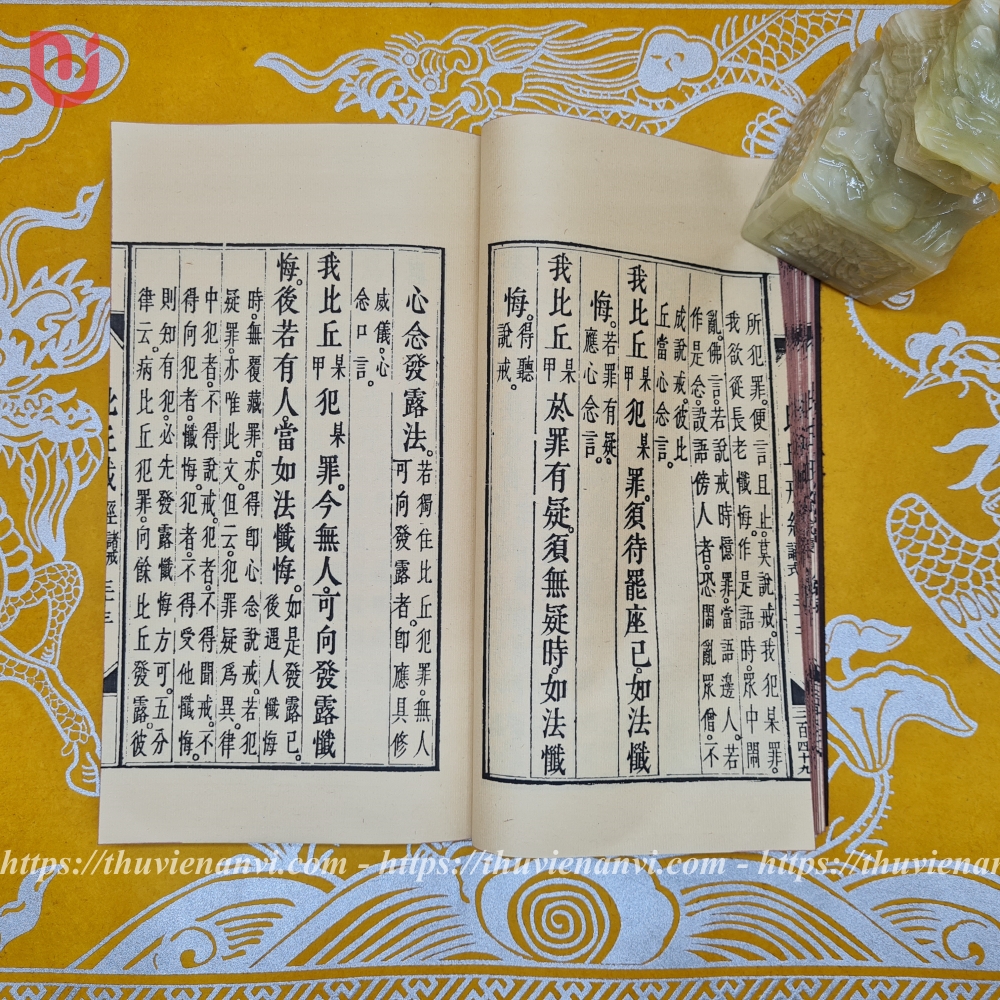 所犯罪。便言且止。莫說戒。我犯某罪。
我欲從長老懺悔。作是語時。眾中鬧
亂。佛言。若說戒時憶罪。當語邊人。若
作是念。設語傍人者。恐鬧亂眾僧。不
成說戒。彼比
丘當心念言。
我比丘某甲犯某罪。須待罷座已。如法懺
悔。若罪有疑。
應心念言。
我比丘某甲於罪有疑。須無疑時。如法懺
悔。得聽
說戒。
三百四十九
心念發露法。若獨住比丘犯罪。無人
可向發露者。即應具修
威儀。心
念口言。
我比丘某甲犯某罪。今無人。可向發露懺
悔。後若有人。當如法懺悔。如是發露已。
後遇人懺悔
時。無覆藏罪。亦得即心念說戒。若犯
疑罪。亦唯此文。但云。犯罪疑為異。律
中犯者。不得說戒。犯者。不得聞戒。不
得向犯者。懺悔。犯者。不得受他懺悔。
則知有犯。必先發露懺悔方可。五分
律云。病比丘犯罪。向餘比丘發露。彼
比丘戒經 諸式 三十三
https://thuvienanvi.com - https://thuvienanvi.com - https://thuvienanvi